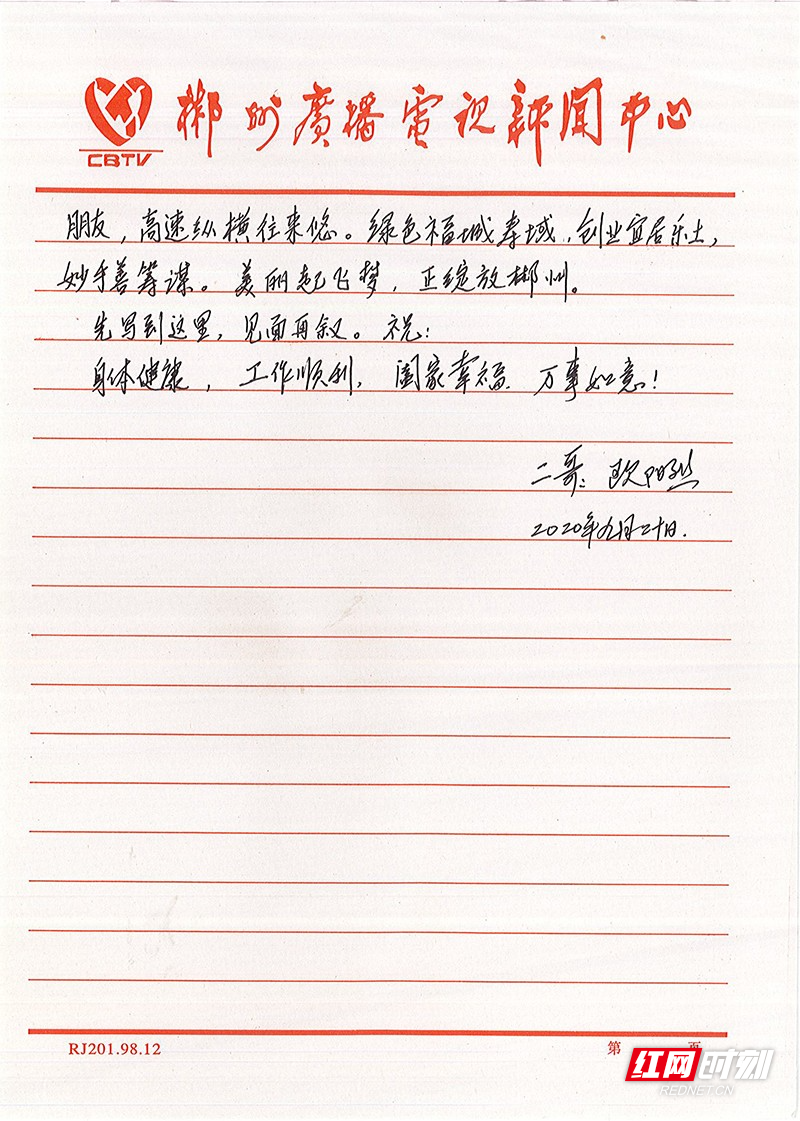 CBTV
郴州廣播電视新闻中心
朋友，高速纵横往来悠。绿色福城寿域，创业宜居乐土，
妙手善筹谋。美丽起飞梦，正绽放郴州。
先写到这里，见面再叙。祝：
身体健康，工作顺利，阖家幸福，万事如意！
二哥：欧阳烈
2020年九月二十日.
RJ201.98.12
第 页
红网时刻
REDNET.CN